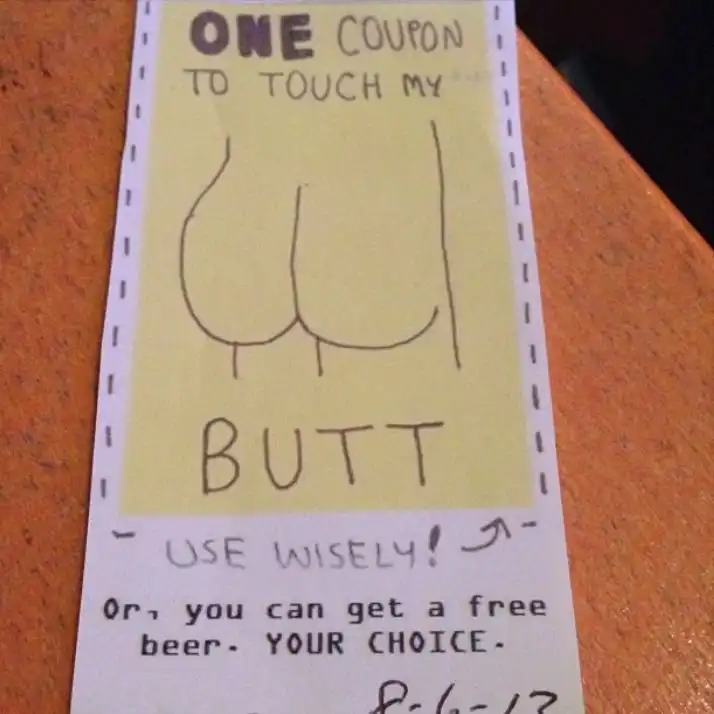 ONE COUPON
TO TOUCH MY
BUTT
USE WISELY!
Or, you can get a free
beer. YOUR CHOICE.
8-6-13